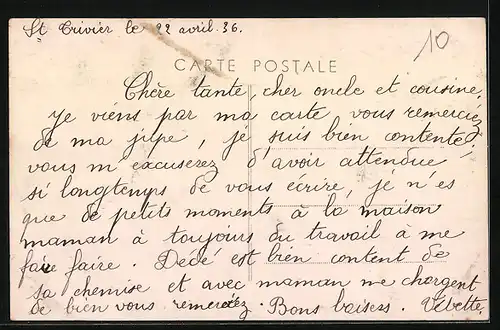 St Trivier le 22 avril. 36.
10
CARTE POSTALE
Chère tante, cher oncle et cousine.
Je viens par ma carte vous remerciez
de ma jupe, je suis bien contente.
vous m'excuserez d'avoir attendue
si longtemps de vous écrire, je n'es
que de petits moments à la maison
maman à toujours du travail à me
faire faire. Dédé est bien content de
sa chemise et avec maman me chargent
de bien vous remerciez. Bons baisers.